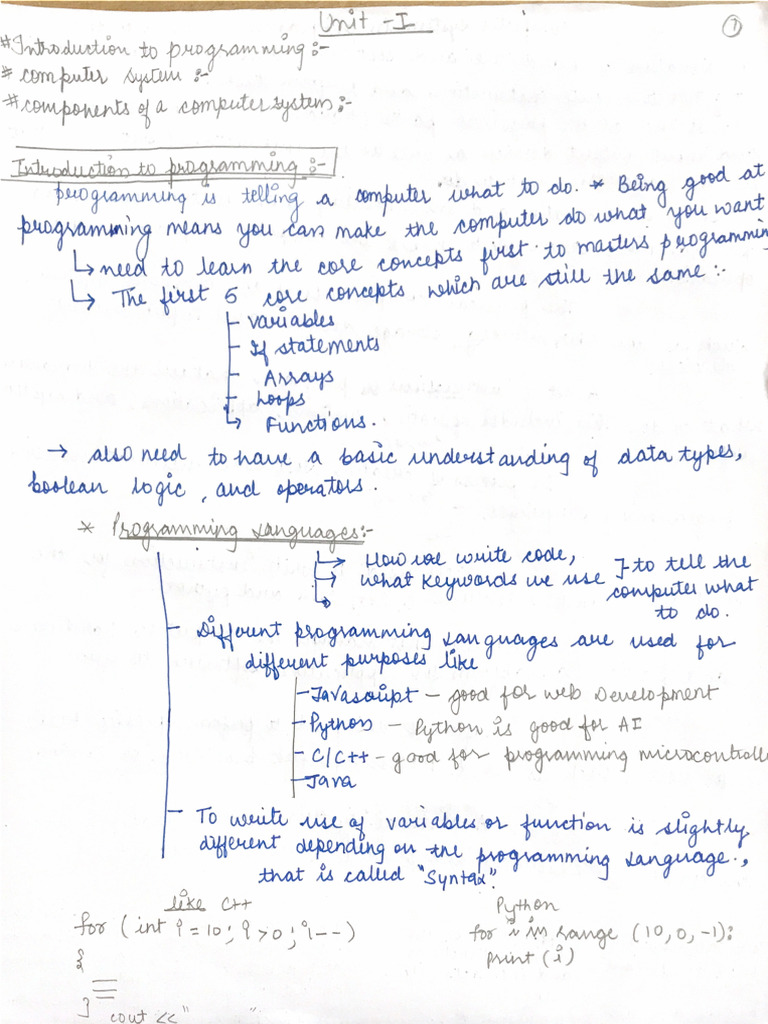 Unit - I
1
# Introduction to programming :-
# computer system :-
# components of a computer system :-
Introduction to programming :-
programming is telling a computer what to do. * Being good at
programming means you can make the computer do what you want
↳ need to learn the core concepts first to masters programming
↳ The first 5 core concepts, which are still the same :-
- variables
- If statements
- Arrays
- Loops
↳ Functions.
→ also need to have a basic understanding of data types,
boolean logic, and operators.
* Programming Languages :-
→ How we write code,
→ what keywords we use } to tell the
computer what
to do.
- Different programming languages are used for
different purposes like
- Javascript - good for web Development
- Python - Python is good for AI
- C/C++ - good for programming microcontrolle
- Java
- To write use of variables or function is slightly
different depending on the programming language.,
that is called "Syntax".
like C++
Python
for (int i = 10; i > 0; i--)
for i in range (10, 0, -1):
{
print (i)
}
cout << "